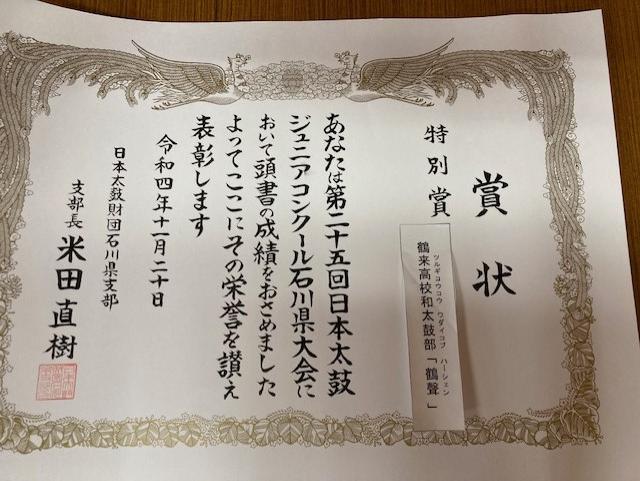 賞状
特別賞
ツルギコウコウ ワダイコブ ハーシェン
鶴来高校和太鼓部「鶴聲」
あなたは第二十五回日本太鼓
ジュニアコンクール石川県大会に
おいて頭書の成績をおさめました
よってここにその栄誉を讃え
表彰します
令和四年十一月二十日
日本太鼓財団石川県支部
支部長 米田直樹